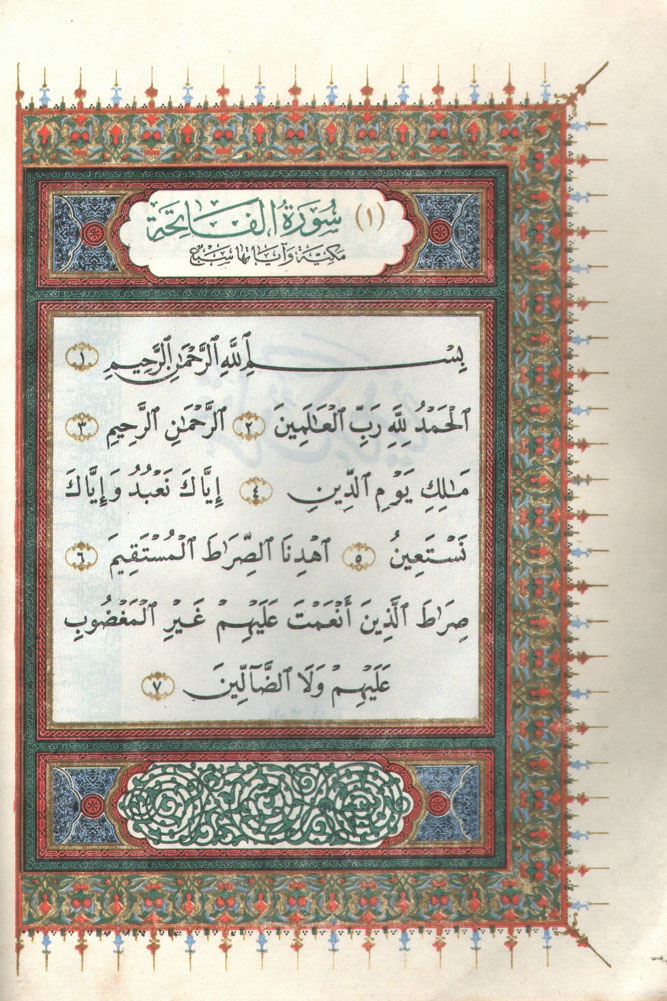 (١) سُورَةُ الْفَاتِحَة
مكيّة وآياتها سَبْع
بِسْمِ اللَّهِ الرَّحْمَٰنِ الرَّحِيمِ ١
الْحَمْدُ لِلَّهِ رَبِّ الْعَالَمِينَ ٢ الرَّحْمَٰنِ الرَّحِيمِ ٣
مَالِكِ يَوْمِ الدِّينِ ٤ إِيَّاكَ نَعْبُدُ وَإِيَّاكَ
نَسْتَعِينُ ٥ اهْدِنَا الصِّرَاطَ الْمُسْتَقِيمَ ٦
صِرَاطَ الَّذِينَ أَنْعَمْتَ عَلَيْهِمْ غَيْرِ الْمَغْضُوبِ
عَلَيْهِمْ وَلَا الضَّآلِّينَ ٧